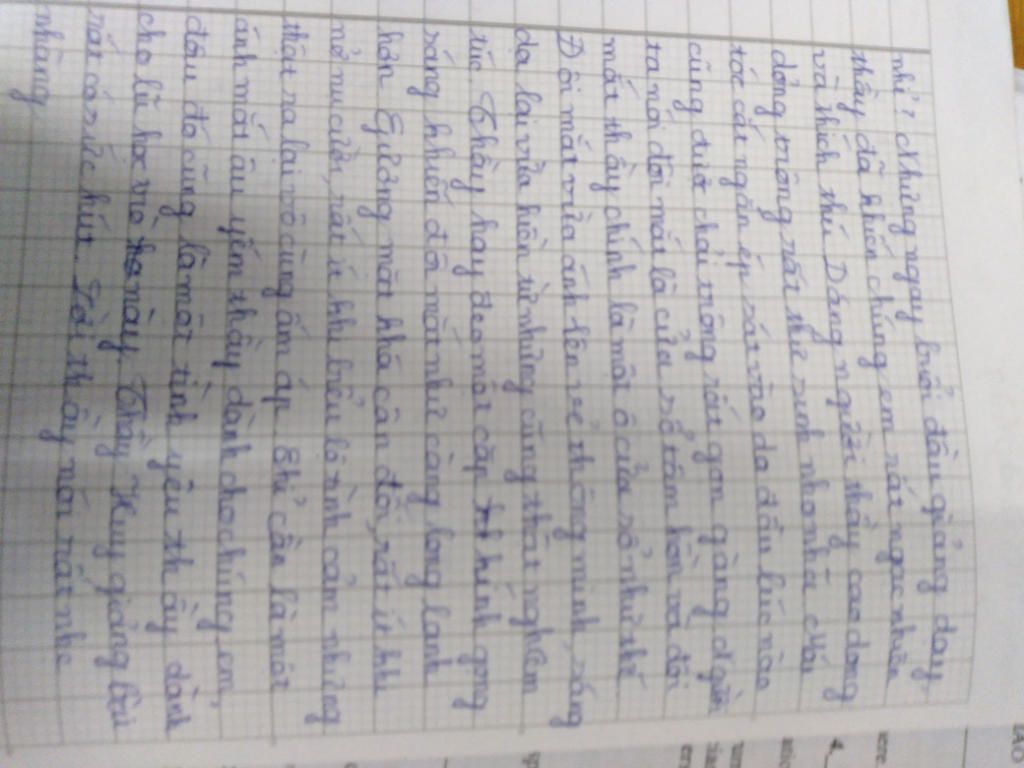 nhỉ? Những ngày buổi đầu giảng dạy,
thầy đã khiến chúng em rất ngạc nhiên
và thích thú. Dáng người thầy cao dong
dỏng trông rất thư sinh nho nhã. Mái
tóc cắt ngắn ép sát vào da đầu lúc nào
cũng được chải trông rất gọn gàng. Người
ta nói đôi mắt là cửa sổ tâm hồn và đôi
mắt thầy chính là một ô cửa sổ như thế
Đôi mắt vừa ánh lên vẻ thông minh, sáng
dạ lại vừa hiền từ nhưng cũng thật nghiêm
túc. Thầy hay đeo một cặp kính gọng
sáng khiến đôi mắt như càng long lanh
hơn. Gương mặt khá cân đối, rất ít khi
nở nụ cười, rất ít khi biểu lộ tình cảm nhưng
thật ra lại vô cùng ấm áp. Chỉ cần là một
ánh mắt âu yếm thầy dành cho chúng em
đâu đó cũng là một tình yêu thầy dành
cho lũ học trò này. Thầy Huy giảng bài
rất có sức hút. Lời thầy nói rất nhẹ
nhàng,